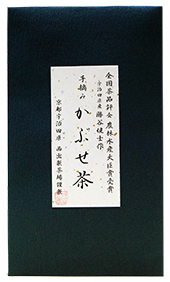 全国茶品評会農林水産大臣賞受賞
宇治田原産 勝谷健士作
手摘み
かぶせ茶
京都宇治田原 西出製茶場謹製